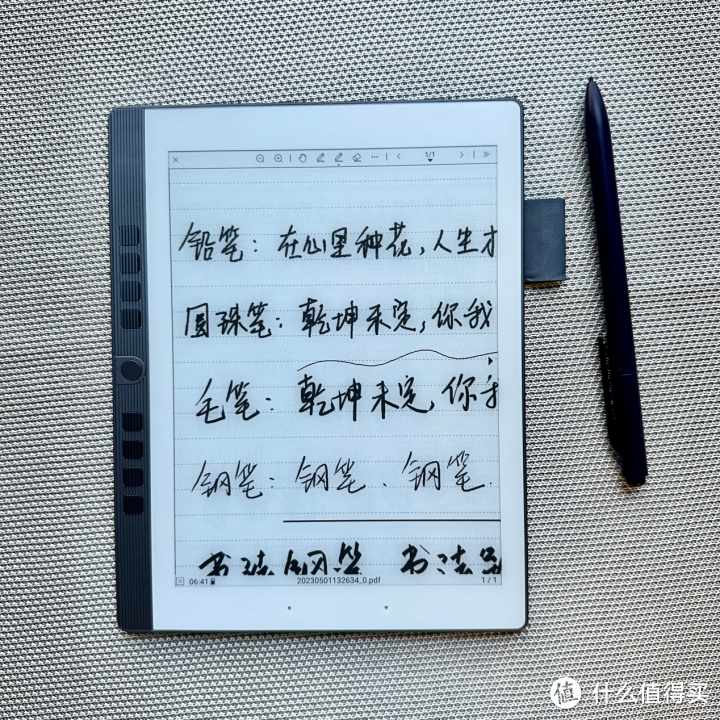 1/1
铅笔：在心里种花，人生才
圆珠笔：乾坤未定，你我
毛笔：乾坤未定，你我
钢笔：钢笔、钢笔.
书法钢笔 书法
06:41 20230501132634_0.pdf 1/1
值 什么值得买